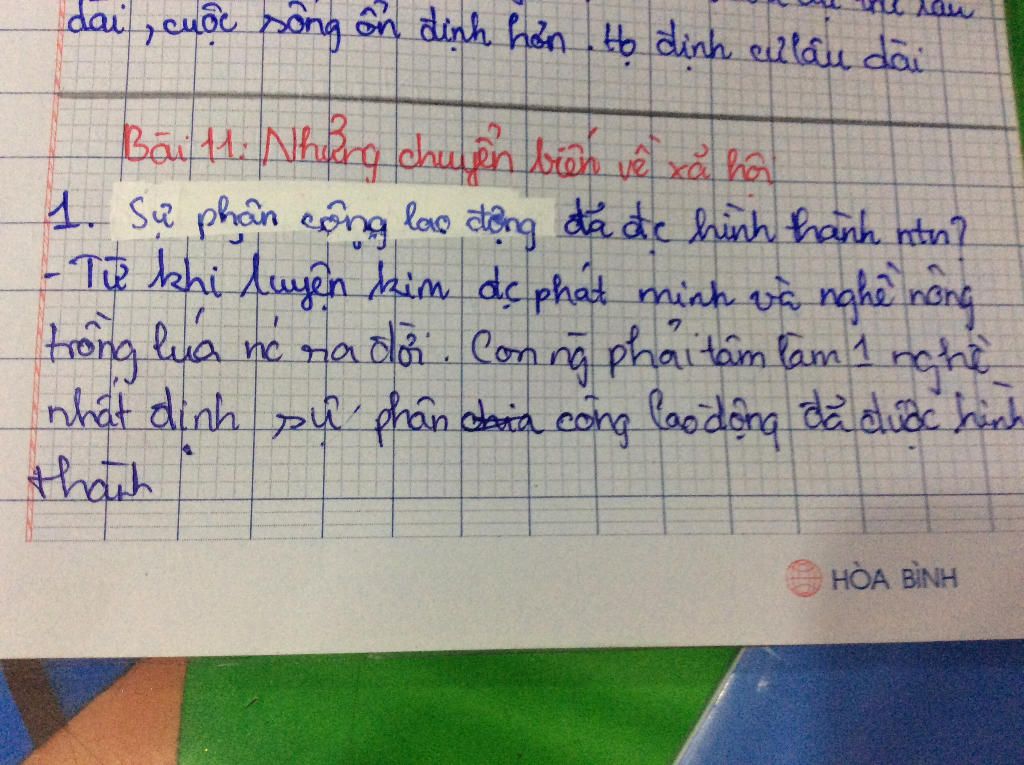 dài, cuộc sống ổn định hơn. Họ định cư lâu dài
Bài 11: Những chuyển biến về xã hội
1. Sự phận công lao động đã đc hình thành ntn?
- Từ khi luyện kim đc phát minh và nghề nông
trồng lúa nc ra đời. Con ng phải tâm làm 1 nghề
nhất định sự phân công lao động đã được hình
thành
HÒA BÌNH